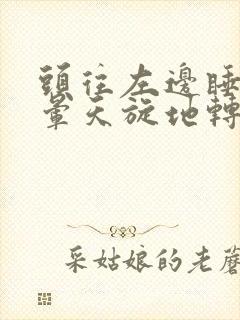 頭往左邊睡
暈天旋地轉
采姑娘的老蘑